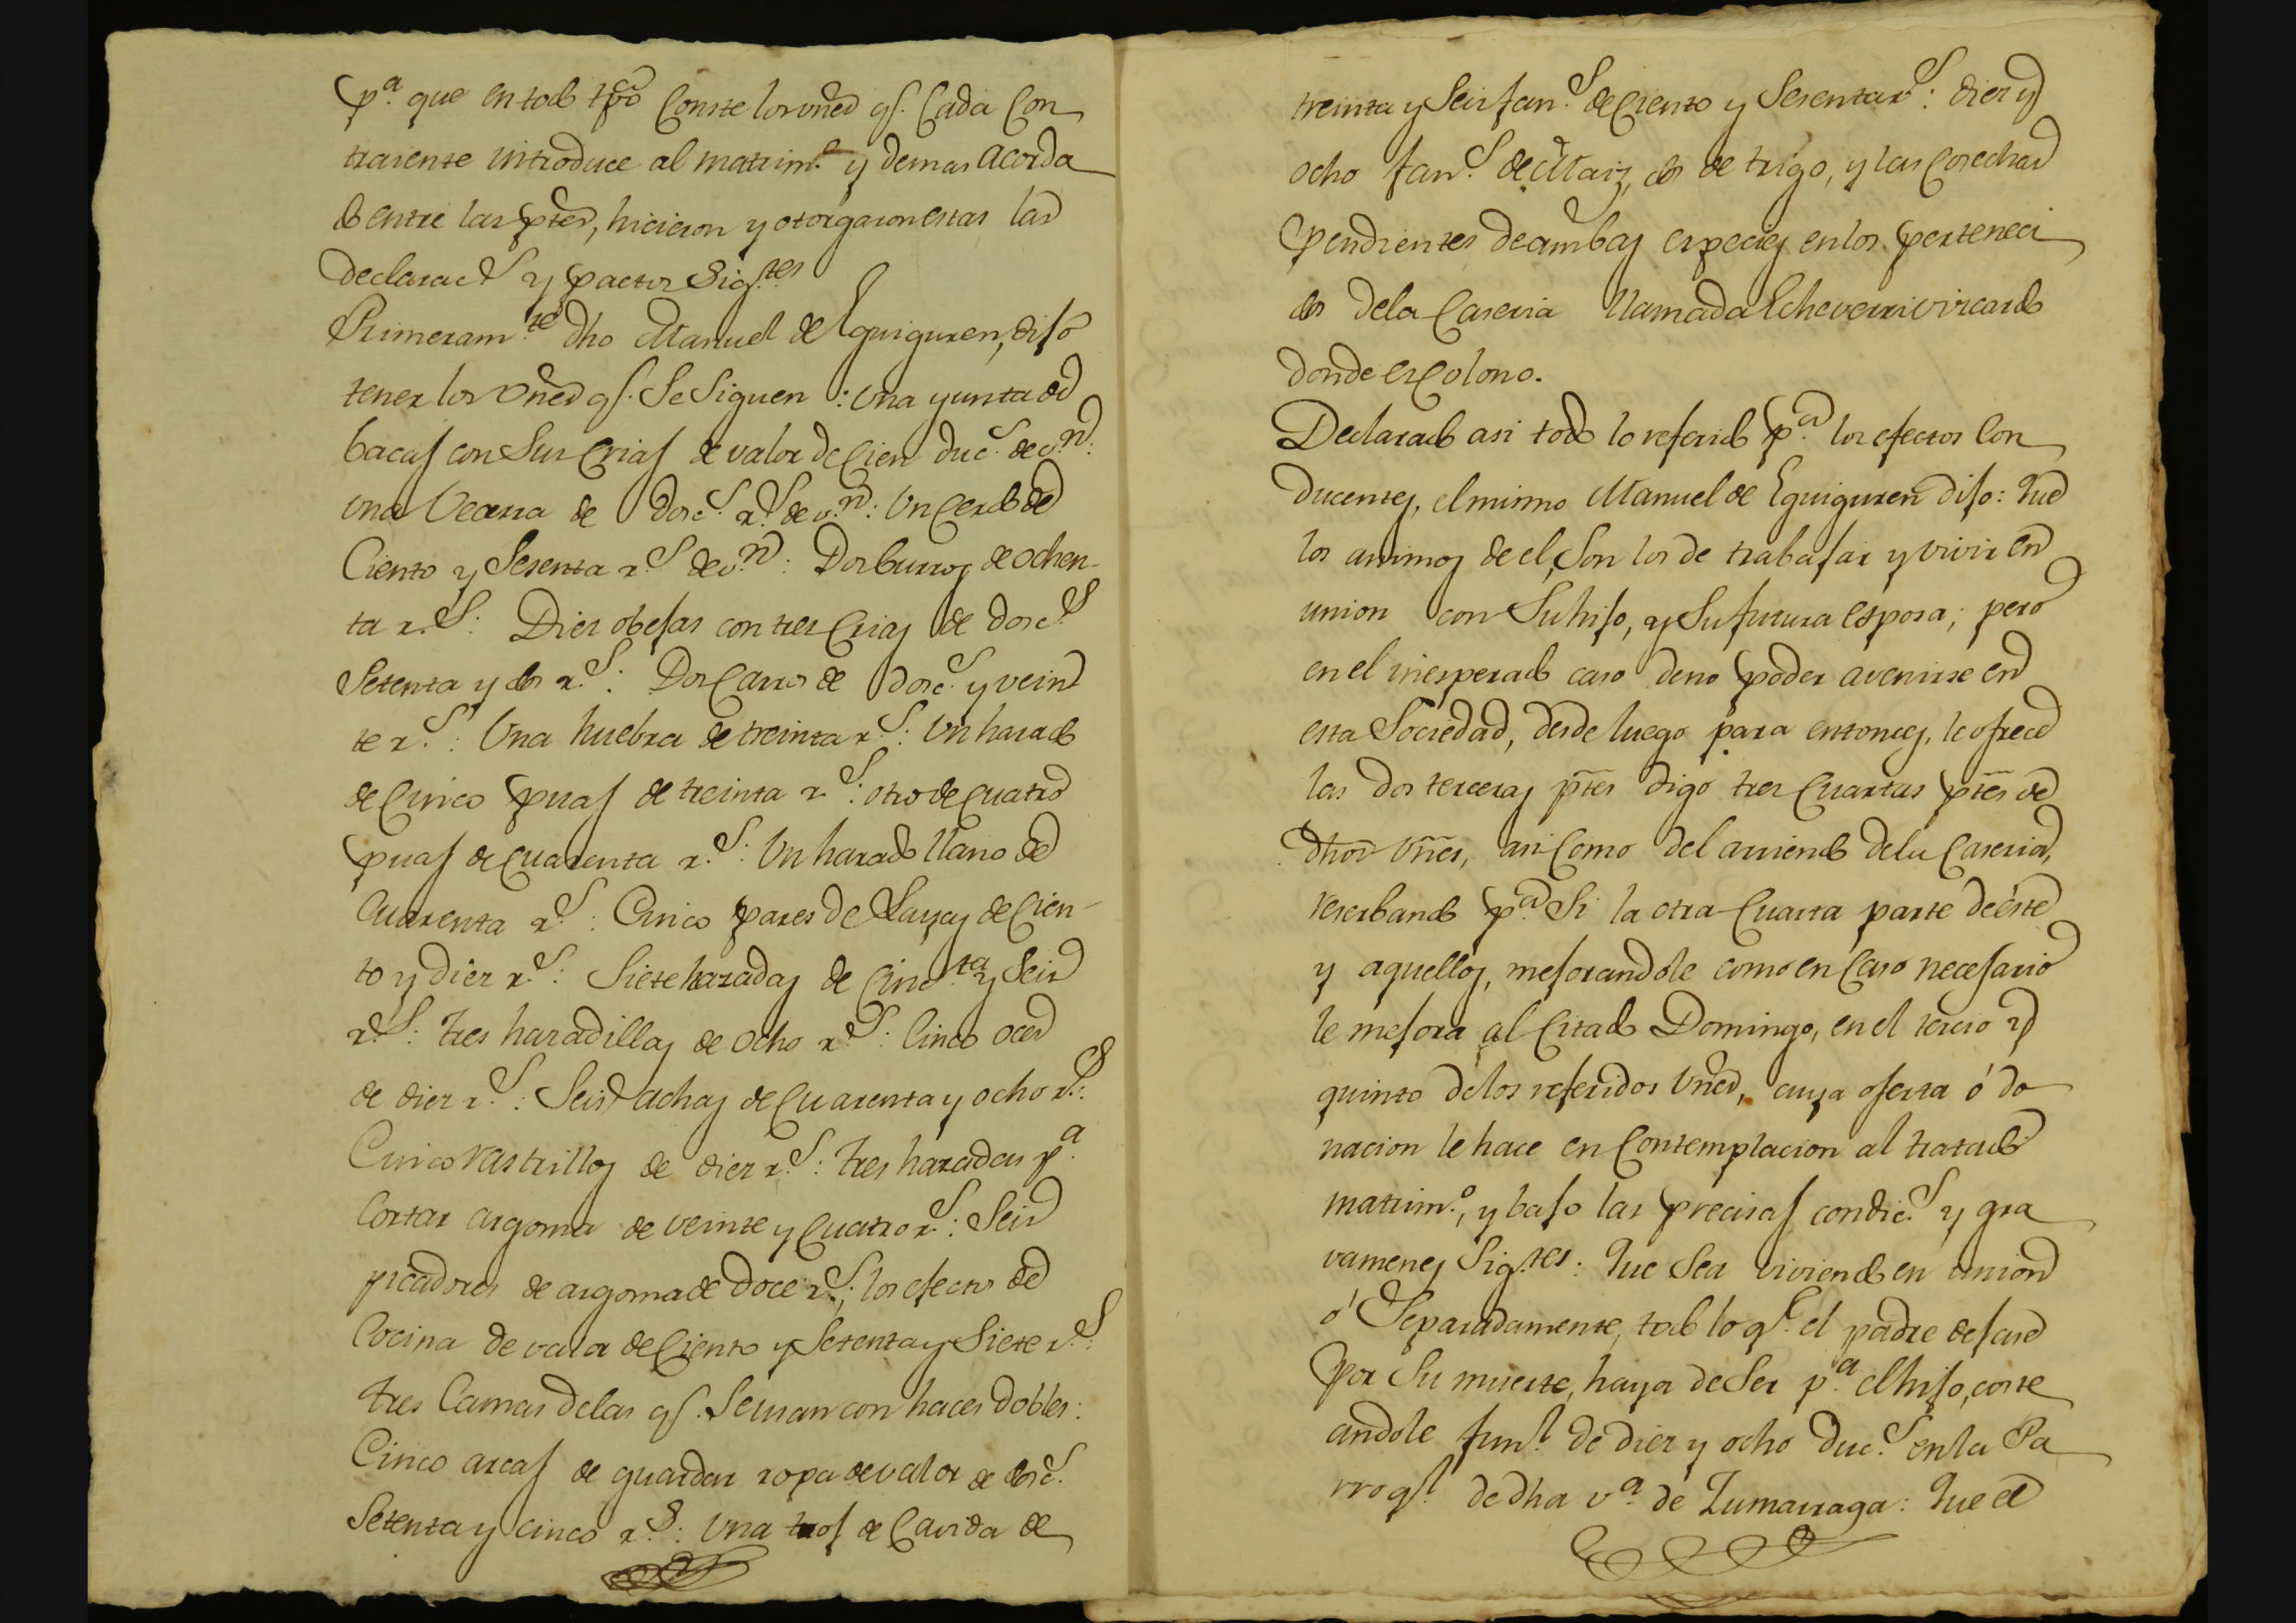 pª que en todo tpo conste los vnes qe. cada con
traiente introduce al matrimº y demas acorda
do entre las ptes, hicieron y otorgaron estas las
declaracs y pactos sigtes
Primeramte dho Manuel de Eguiguren, dijo
tener los vnes qe. se siguen : una yunta de
bacas con sus crias de valor de cien ducs. de vn.
una Vecerra de dosc.s rs. de vn: un cerdo de
ciento y sesenta rs. de vn: Dos burros de ochen-
ta rs: Diez obejas con tres crias de dosc.s
setenta y dos rs: Dos carros de dosc.s y vein
te rs: Una huebra de treinta rs: un harado
de cinco puas de treinta rs: otro de cuatro
puas de cuarenta rs: un harado llano de
cuarenta rs: Cinco pares de Layas de cien-
to y diez rs: Siete hazadas de cincta y seis
rs: tres hazadillas de ocho rs: cinco oces
de diez rs: Seis achas de cuarenta y ocho rs:
Cinco rastrillos de diez rs: tres hazadas pª
cortar argoma de veinte y cuatro rs: seis
picadores de argoma de doce rs; los efectos de
cocina de valor de ciento y setenta y siete rs:
tres camas de las qe. se usan con haces dobles:
Cinco arcas de guardar ropa de valor de dosc.s
setenta y cinco rs: una troj de cavida de
treinta y seis fans de ciento y sesenta rs: diez y
ocho fans. de Maiz, dos de trigo, y las cosechas
pendientes de ambas especies en los perteneci
dos de la caseria llamada Echeverrivircardo
donde es colono.
Declarado asi todo lo referido pª los efectos con
ducentes, el mismo Manuel de Eguiguren dijo: Que
los animos de el, son los de trabajar y vivir en
union con su hijo, y su futura esposa; pero
en el inesperado caso de no poder avenirse en
esta Sociedad, desde luego para entonces, le ofrece
las dos terceras ptes digo tres cuartas ptes de
dhos vnes, asi como del arriendo de la caseria,
reserbando pª si la otra cuarta parte de éste
y aquellos, mejorandole como en caso necesario
le mejora al citado Domingo, en el tercio y
quinto de los referidos vnes, cuya oferta ó do
nacion le hace en contemplacion al tratado
matrimº, y bajo las precisas condics y gra
vamenes sigtes: Que sea viviendo en union
ó separadamente, todo lo qe. el padre dejase
por su muerte, haya de ser pª el hijo, coste
andole funl de diez y ocho ducs en la Pa
rroql de dha vª de Zumarraga: Que el